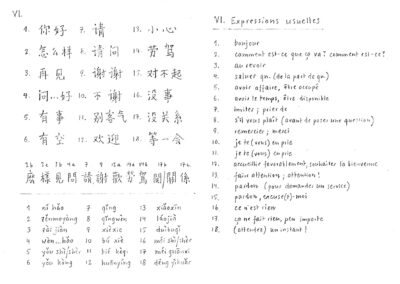 VI.
1. 你好 7. 请 13. 小心
2. 怎么样 8. 请问 14. 劳驾
3. 再见 9. 谢谢 15. 对不起
4. 问...好 10. 不谢 16. 没事
5. 有事 11. 别客气 17. 没关系
6. 有空 12. 欢迎 18. 等一会
麼 樣 見 問 請 謝 歡 勞 駕 關/関 係
1 nǐ hǎo 7 qǐng 13 xiǎoxīn
2 zěnmeyàng 8 qǐngwèn 14 láojià
3 zài jiàn 9 xièxie 15 duìbuqǐ
4 wèn...hǎo 10 bú xiè 16 méi shì/shìr
5 yǒu shì/shìr 11 bié kèqi 17 méi guānxi
6 yǒu kòng 12 huānyíng 18 děng yíhuìr
VI. Expressions usuelles
1. bonjour
2. comment est-ce que ça va? comment est-ce?
3. au revoir
4. saluer qn. (de la part de qn.)
5. avoir affaire, être occupé
6. avoir le temps, être disponible
7. inviter; prier de
8. s'il vous plaît (avant de poser une question)
9. remercier; merci
10. je te (vous) en prie
11. je te (vous) en prie
12. accueillir favorablement, souhaiter la bienvenue
13. faire attention; attention!
14. pardon (pour demander un service)
15. pardon, excuse(z)-moi
16. ce n'est rien
17. ça ne fait rien, peu importe
18. (attendez) un instant!